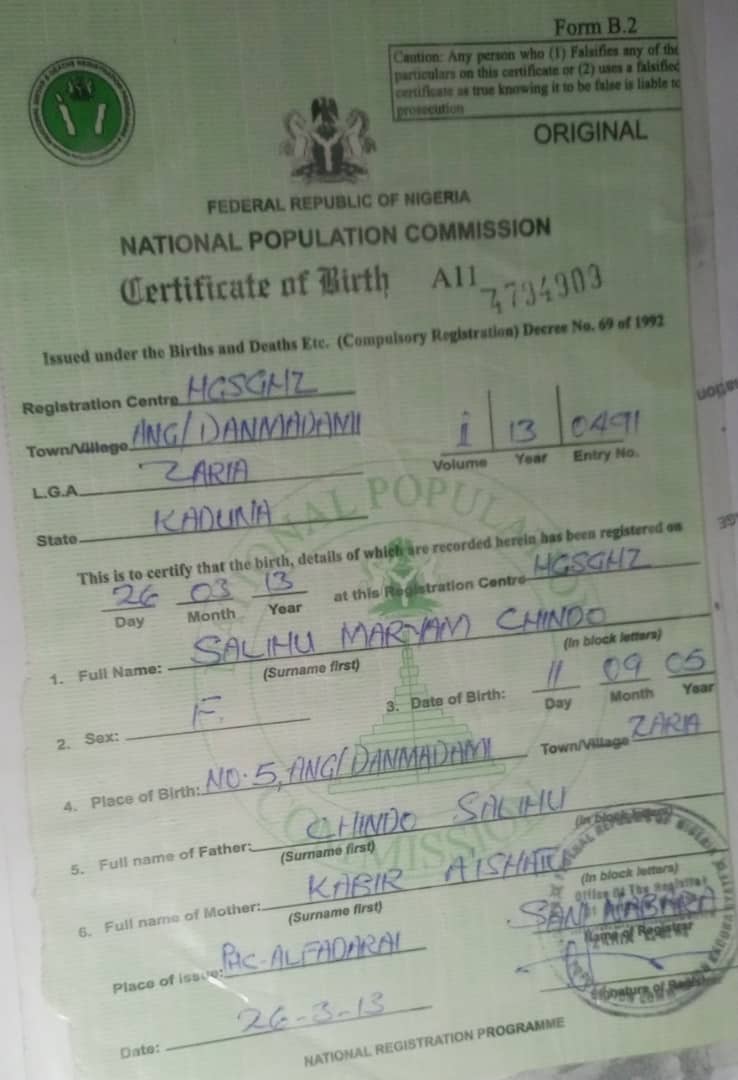 Form B.2
Caution: Any person who (1) Falsifies any of the
particulars on this certificate or (2) uses a falsified
certificate as true knowing it to be false is liable to
prosecution
ORIGINAL
FEDERAL REPUBLIC OF NIGERIA
NATIONAL POPULATION COMMISSION
Certificate of Birth A11 4794903
Issued under the Births and Deaths Etc. (Compulsory Registration) Decree No. 69 of 1992
Registration Centre HGSGHZ
Town/Village ANG/DANMADAMI
L.G.A. ZARIA
State KADUNA
1 13 0491
Volume Year Entry No.
This is to certify that the birth, details of which are recorded herein has been registered on
26 03 13 at this Registration Centre HGSGHZ
Day Month Year
1. Full Name: SALIHU MARYAM CHINDO
(Surname first) (In block letters)
2. Sex: F.
3. Date of Birth: 11 09 05
Day Month Year
4. Place of Birth: NO. 5, ANG/DANMADAMI Town/Village ZARIA
5. Full name of Father: CHINDO SALIHU
(Surname first) (In block letters)
6. Full name of Mother: KABIR A'ISHATU
(Surname first) (In block letters)
SANI
Name of Registrar
Place of issue: PHC-ALFADARAI
Signature of Registrar
Date: 26-3-13
NATIONAL REGISTRATION PROGRAMME